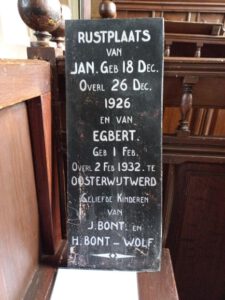 RUSTPLAATS
VAN
JAN. GEB 18 DEC.
OVERL 26 DEC.
1926
EN VAN
EGBERT.
GEB 1 FEB.
OVERL 2 FEB 1932. TE
OOSTERWIJTWERD
GELIEFDE KINDEREN
VAN
J. BONT. EN
H. BONT - WOLF.